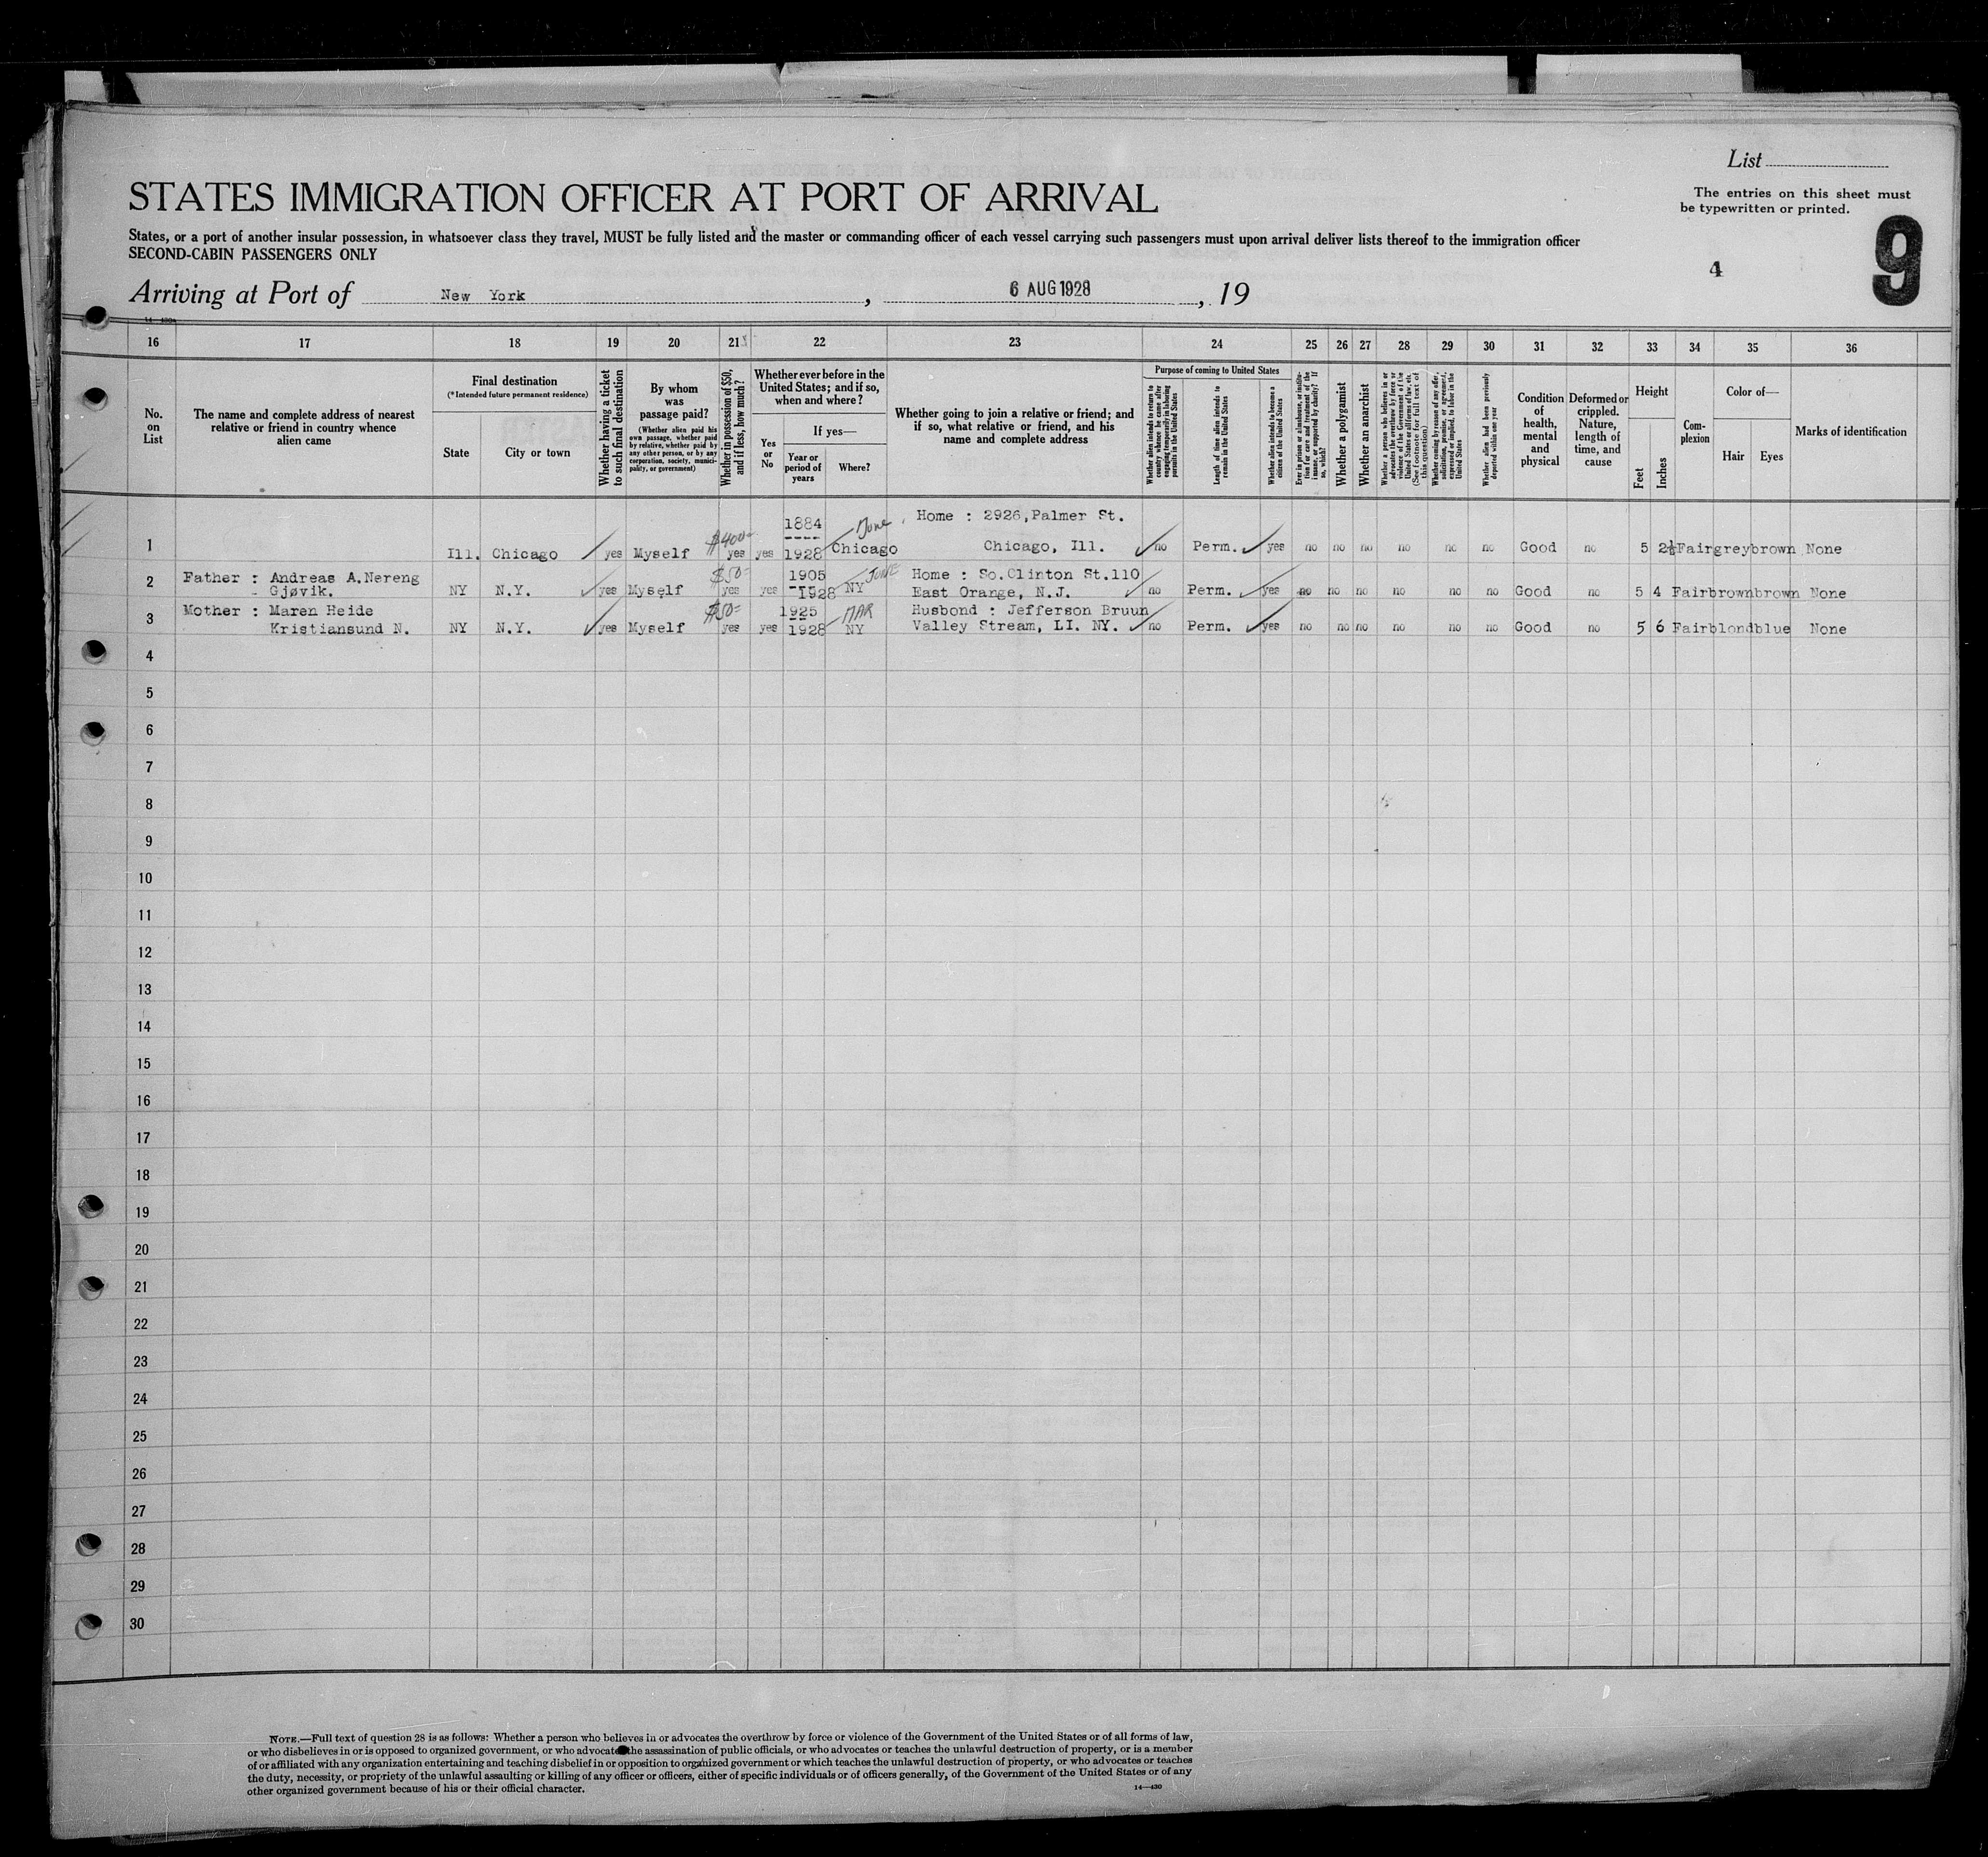 List
STATES IMMIGRATION OFFICER AT PORT OF ARRIVAL
The entries on this sheet must
be typewritten or printed.
States, or a port of another insular possession, in whatsoever class they travel, MUST be fully listed and the master or commanding officer of each vessel carrying such passengers must upon arrival deliver lists thereof to the immigration officer
SECOND-CABIN PASSENGERS ONLY
4
9
Arriving at Port of New York , 6 AUG 1928 , 19
16 17 18 19 20 21 22 23 24 25 26 27 28 29 30 31 32 33 34 35 36
No.
on
List
The name and complete address of nearest
relative or friend in country whence
alien came
Final destination
(*Intended future permanent residence)
State
City or town
Whether having a ticket
to such final destination
By whom
was
passage paid?
(Whether alien paid his
own passage, whether paid
by relative, whether paid by
any other person, or by any
corporation, society, munici-
pality, or government)
Whether in possession of $50,
and if less, how much?
Whether ever before in the
United States; and if so,
when and where?
Yes
or
No
If yes—
Year or
period of
years
Where?
Whether going to join a relative or friend; and
if so, what relative or friend, and his
name and complete address
Purpose of coming to United States
Whether alien intends to return to
country whence he came after
engaging temporarily in laboring
pursuits in the United States
Length of time alien intends to
remain in the United States
Whether alien intends to become a
citizen of the United States
Ever in prison or almshouse, or institu-
tion for care and treatment of the
insane, or supported by charity? If
so, which?
Whether a polygamist
Whether an anarchist
Whether a person who believes in or
advocates the overthrow by force or
violence of the Government of the
United States or all forms of law, etc.
(See footnote for full text of
this question)
Whether coming by reason of any offer,
solicitation, promise, or agreement,
expressed or implied, to labor in the
United States
Whether alien had been previously
deported within one year
Condition
of
health,
mental
and
physical
Deformed or
crippled.
Nature,
length of
time, and
cause
Height
Feet
Inches
Com-
plexion
Color of—
Hair
Eyes
Marks of identification
1884 June Home : 2926,Palmer St.
----
1 Ill. Chicago yes Myself $400- yes yes 1928 Chicago Chicago, Ill. no Perm. yes no no no no no no Good no 5 2½ Fair grey brown None
2 Father : Andreas A.Nereng $50- 1905 JUNE Home : So.Clinton St.110
- Gjøvik. NY N.Y. yes Myself yes yes 1928 NY East Orange, N.J. no Perm. yes no no no no no no Good no 5 4 Fair brown brown None
3 Mother : Maren Heide $50- 1925 MAR Husbond : Jefferson Bruun
Kristiansund N. NY N.Y. yes Myself yes yes 1928 NY Valley Stream, LI. NY. no Perm. yes no no no no no no Good no 5 6 Fair blond blue None
4
5
6
7
8
9
10
11
12
13
14
15
16
17
18
19
20
21
22
23
24
25
26
27
28
29
30
NOTE.—Full text of question 28 is as follows: Whether a person who believes in or advocates the overthrow by force or violence of the Government of the United States or of all forms of law,
or who disbelieves in or is opposed to organized government, or who advocates the assassination of public officials, or who advocates or teaches the unlawful destruction of property, or is a member
of or affiliated with any organization entertaining and teaching disbelief in or opposition to organized government or which teaches the unlawful destruction of property, or who advocates or teaches
the duty, necessity, or propriety of the unlawful assaulting or killing of any officer or officers, either of specific individuals or of officers generally, of the Government of the United States or of any
other organized government because of his or their official character.
14—430